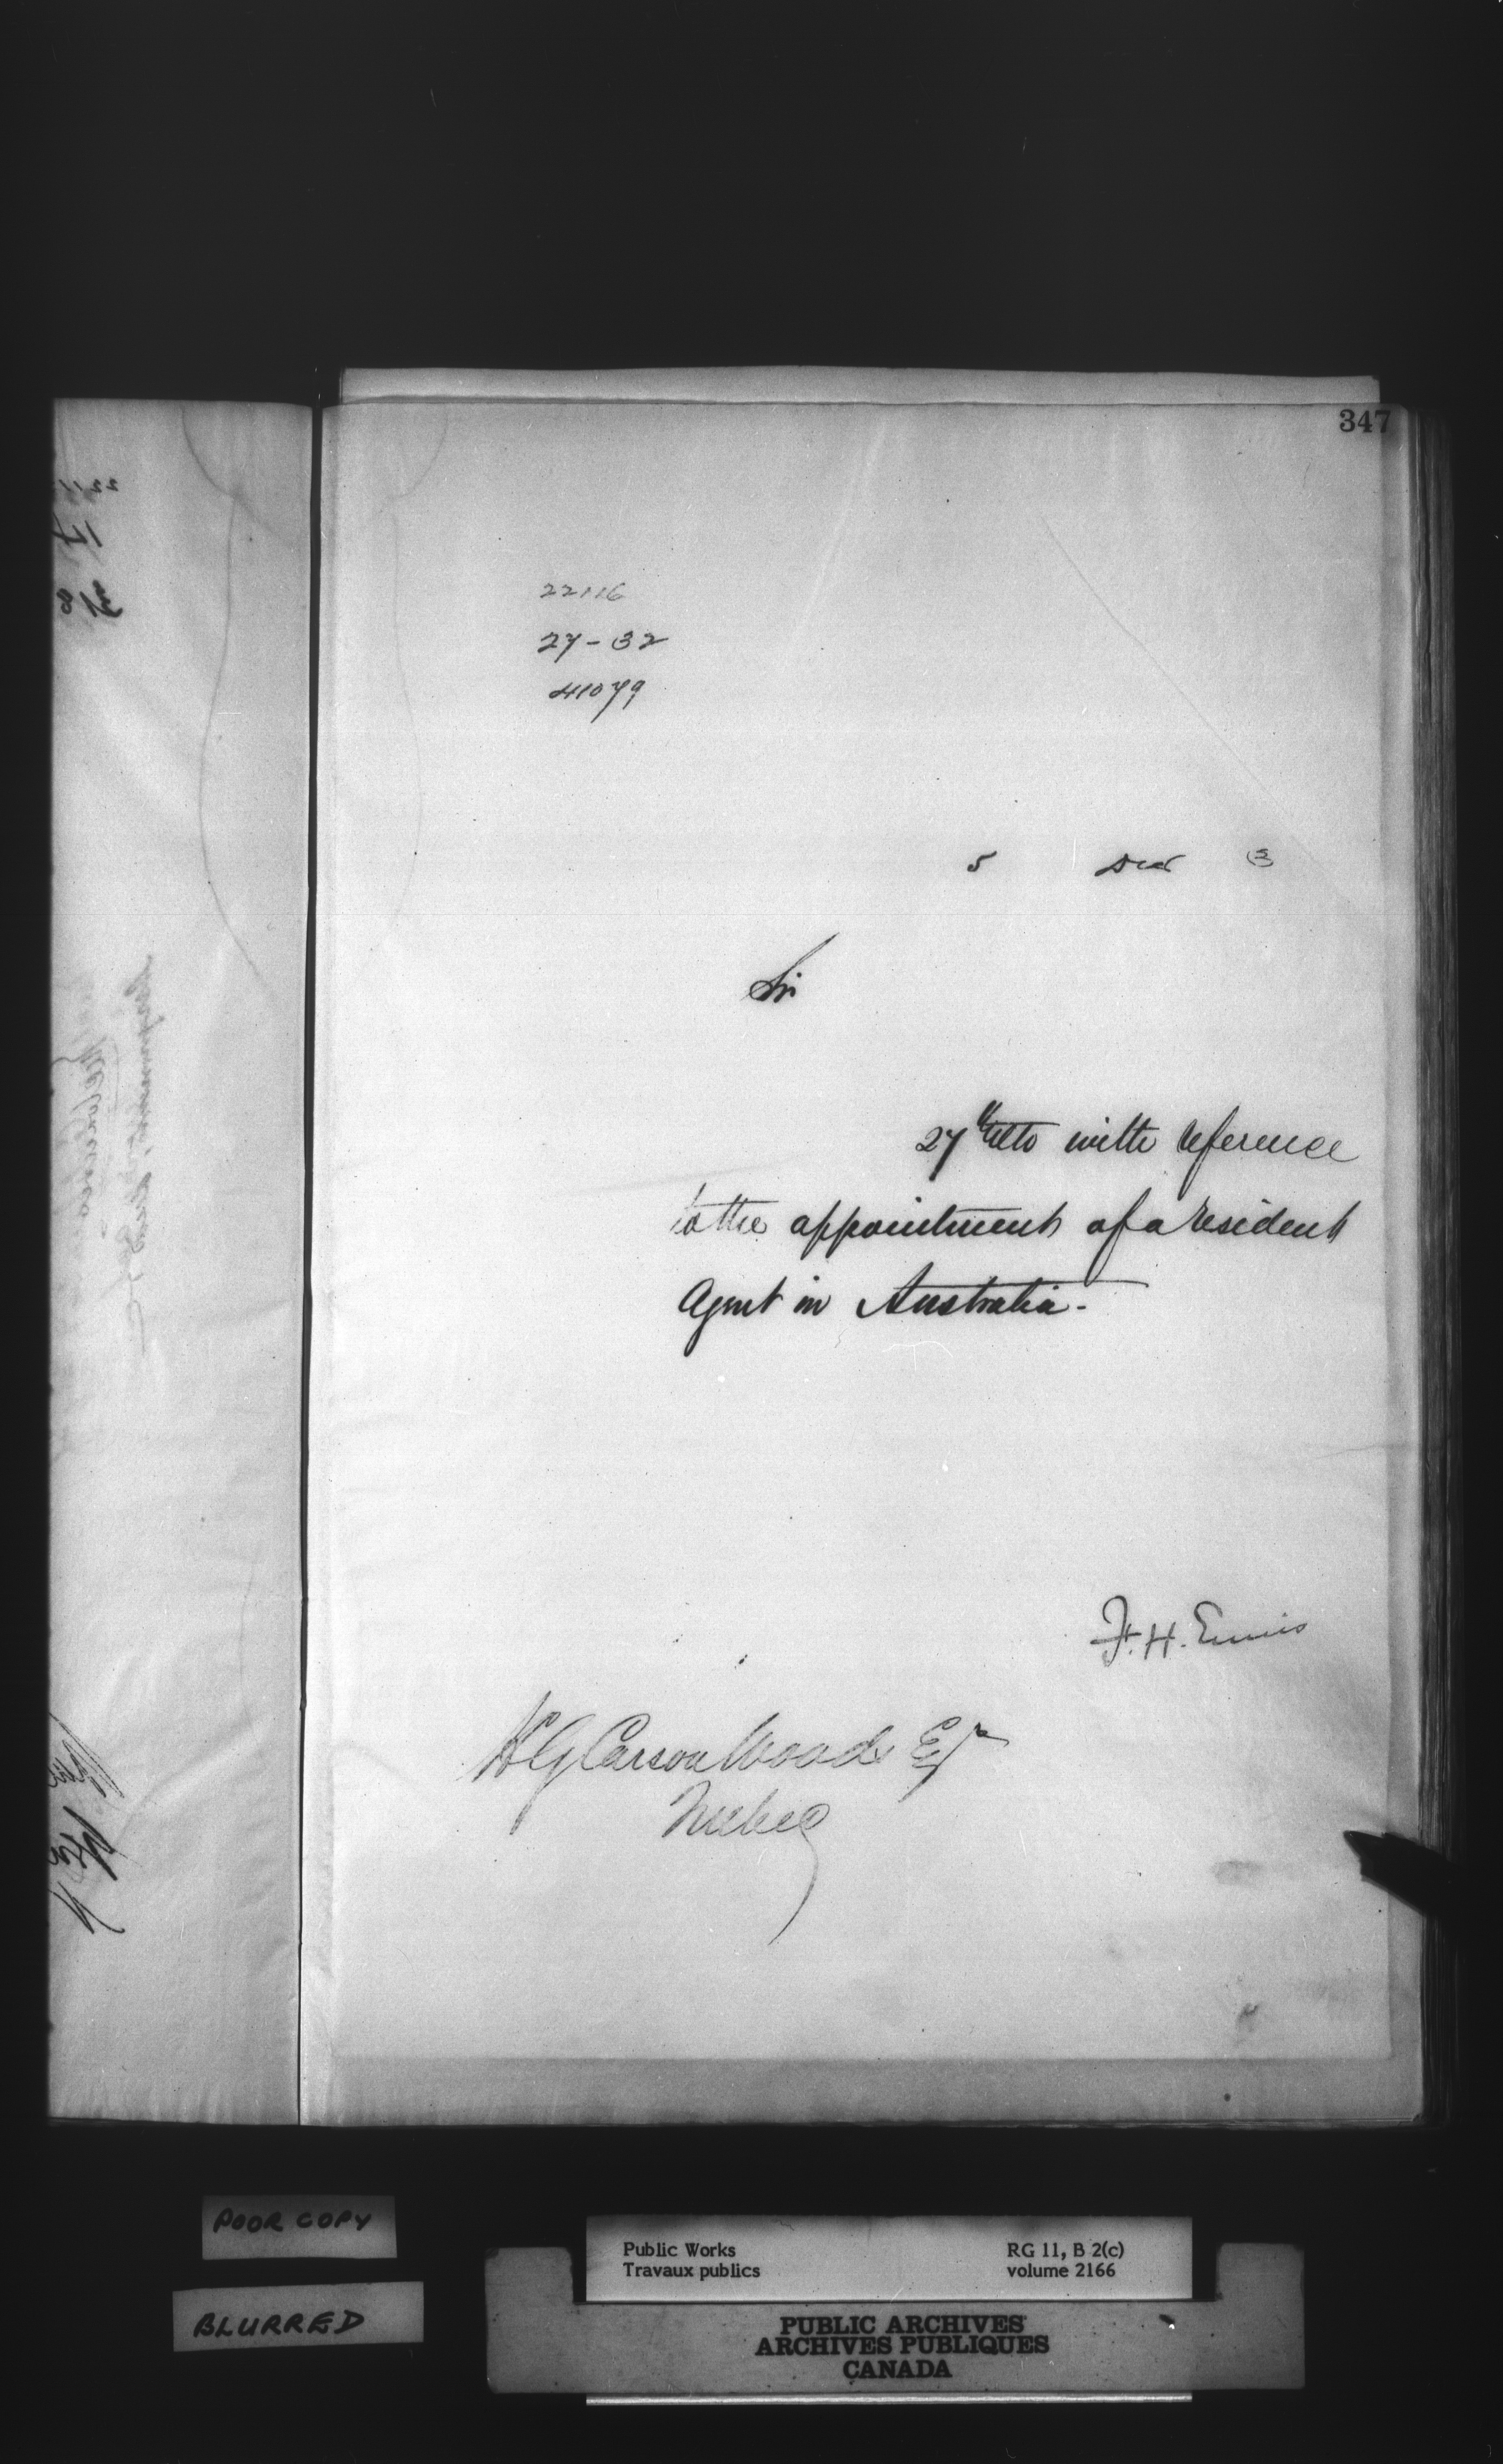 347
22116
27-32
41079
5 Dec 3
Sir
27th ulto with reference
to the appointment of a resident
Agent in Australia.
F. H. Ennis
H G Carson Woods Esqr
POOR COPY
BLURRED
Public Works
Travaux publics
RG 11, B 2(c)
volume 2166
PUBLIC ARCHIVES
ARCHIVES PUBLIQUES
CANADA